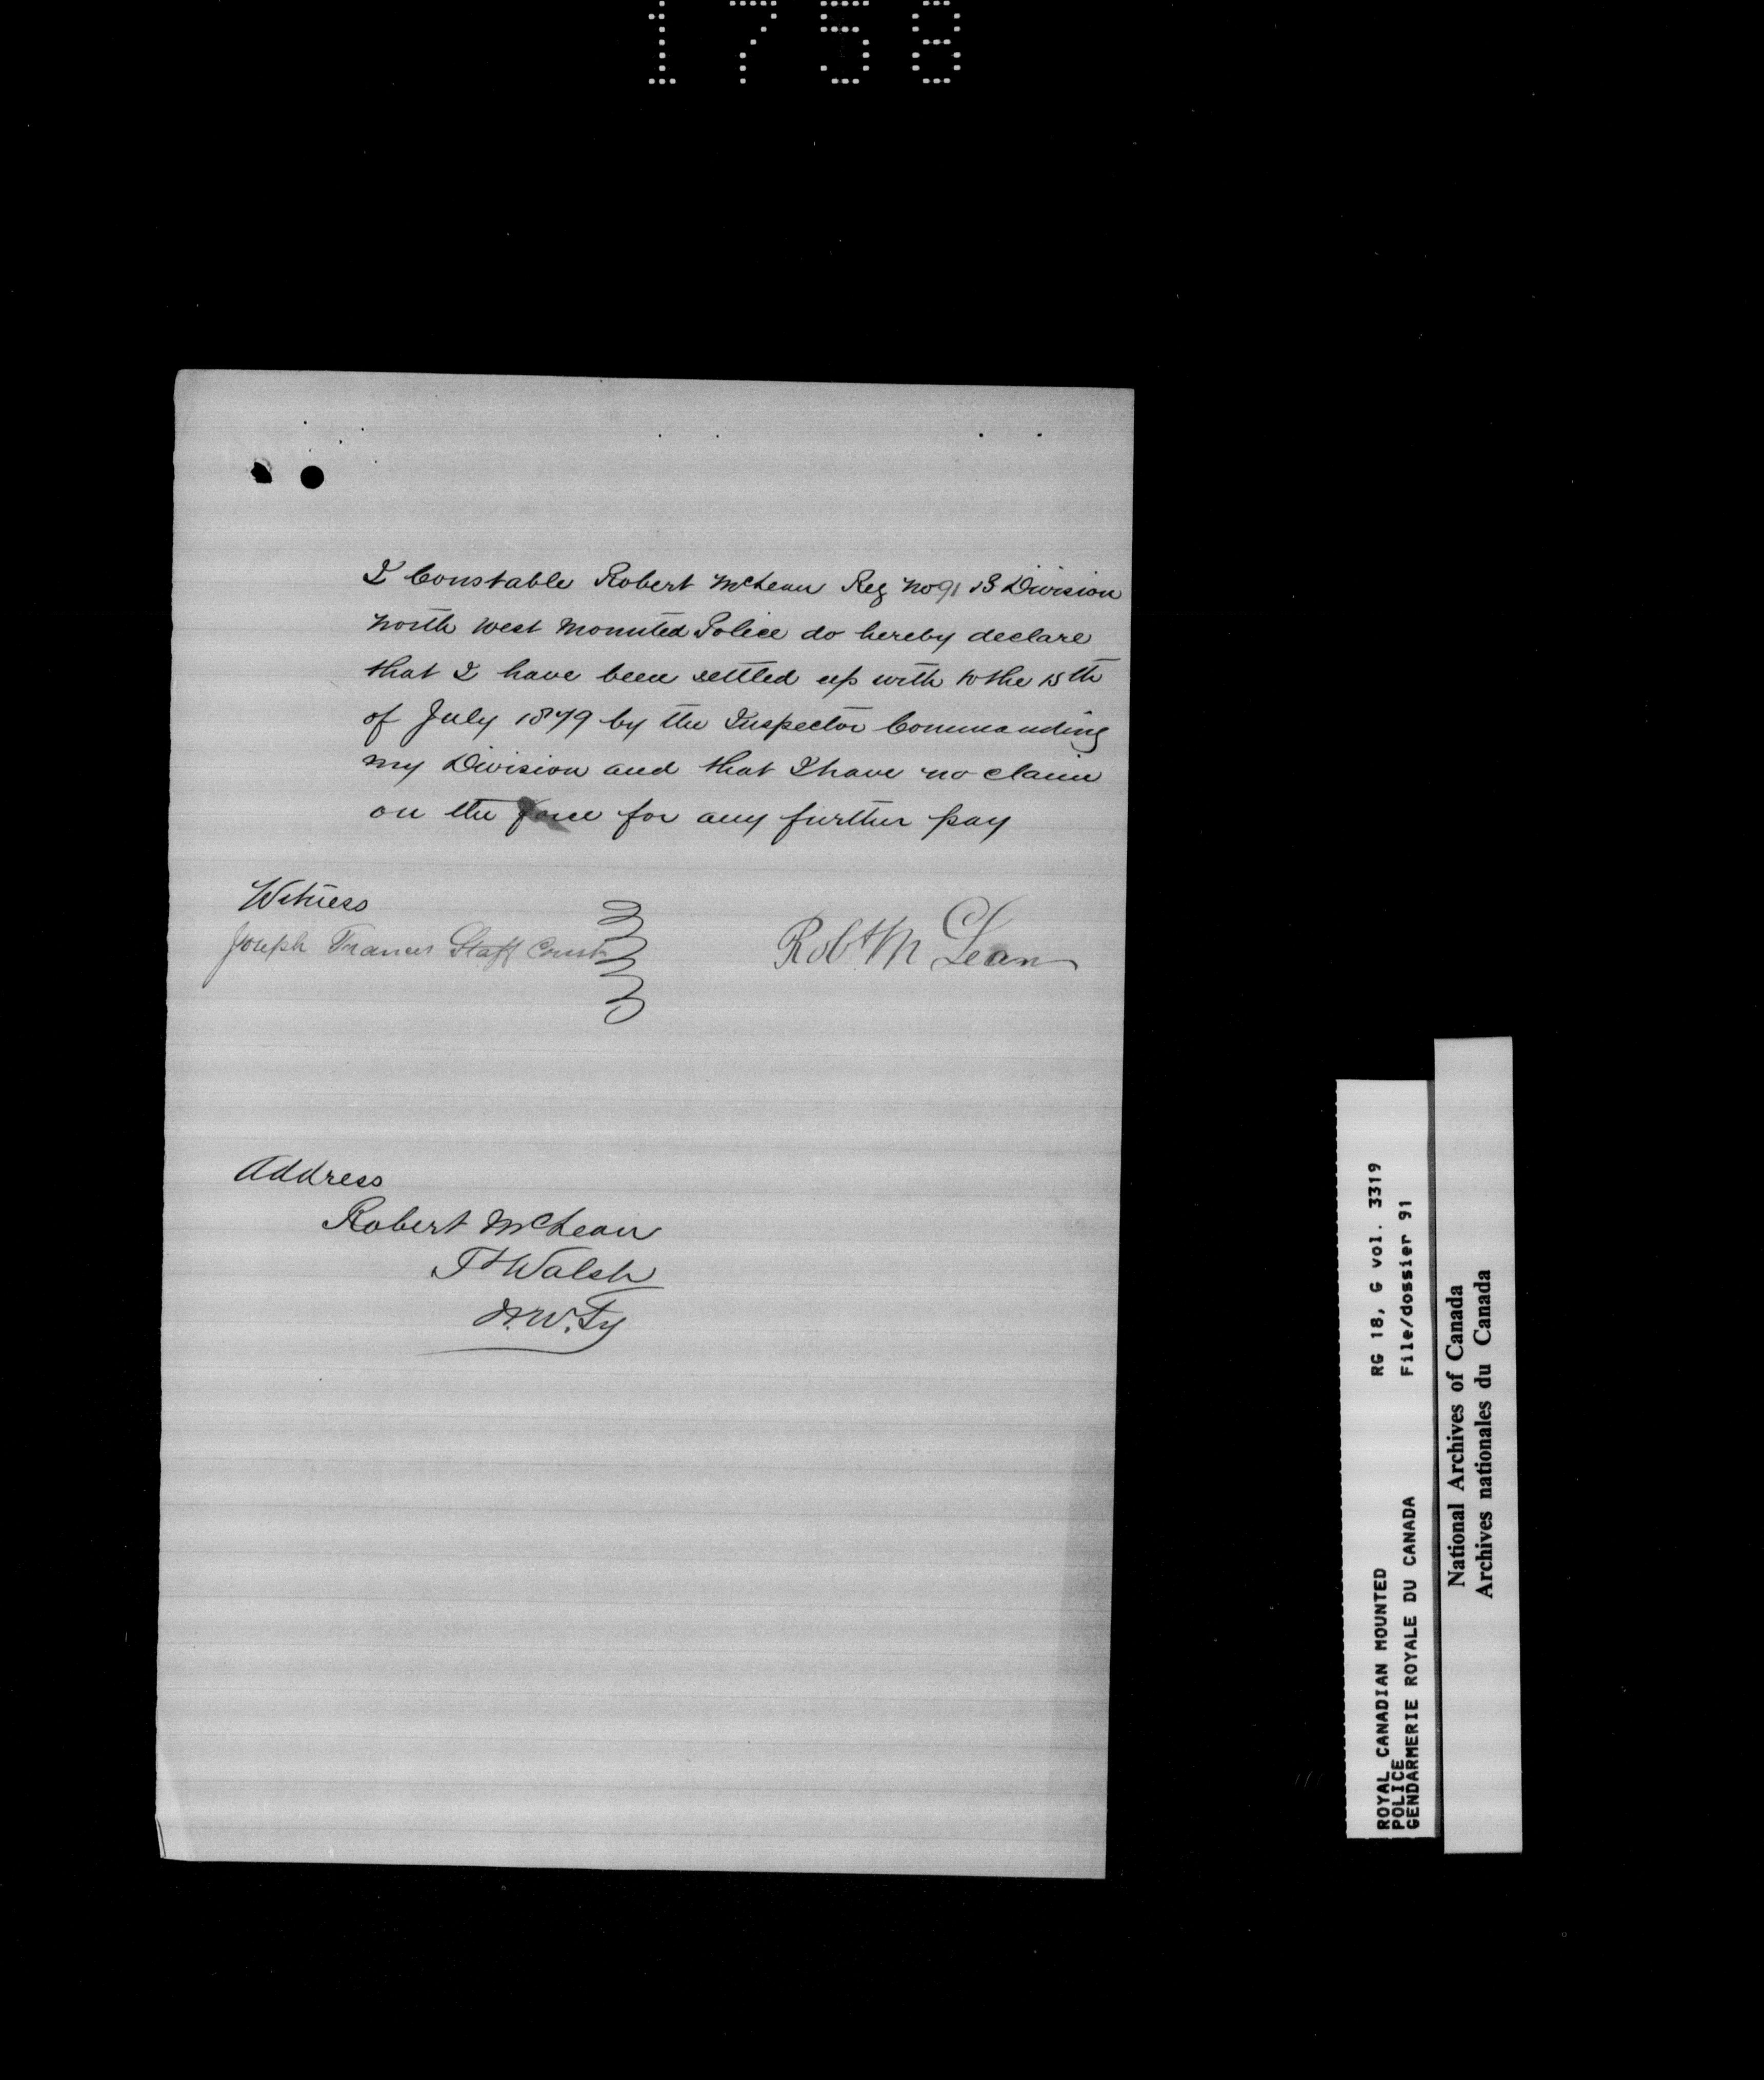 1758
I Constable Robert McLean Reg No 91 B Division
North West Mounted Police do hereby declare
that I have been settled up with to the 15th
of July 1879 by the Inspector Commanding
my Division and that I have no claim
on the force for any further pay
Witness
Joseph Francis Staff Const
Robt McLean
Address
Robert McLean
Ft Walsh
N.W.Ty
ROYAL CANADIAN MOUNTED RG 18, G vol. 3319
POLICE File/dossier 91
GENDARMERIE ROYALE DU CANADA
National Archives of Canada
Archives nationales du Canada